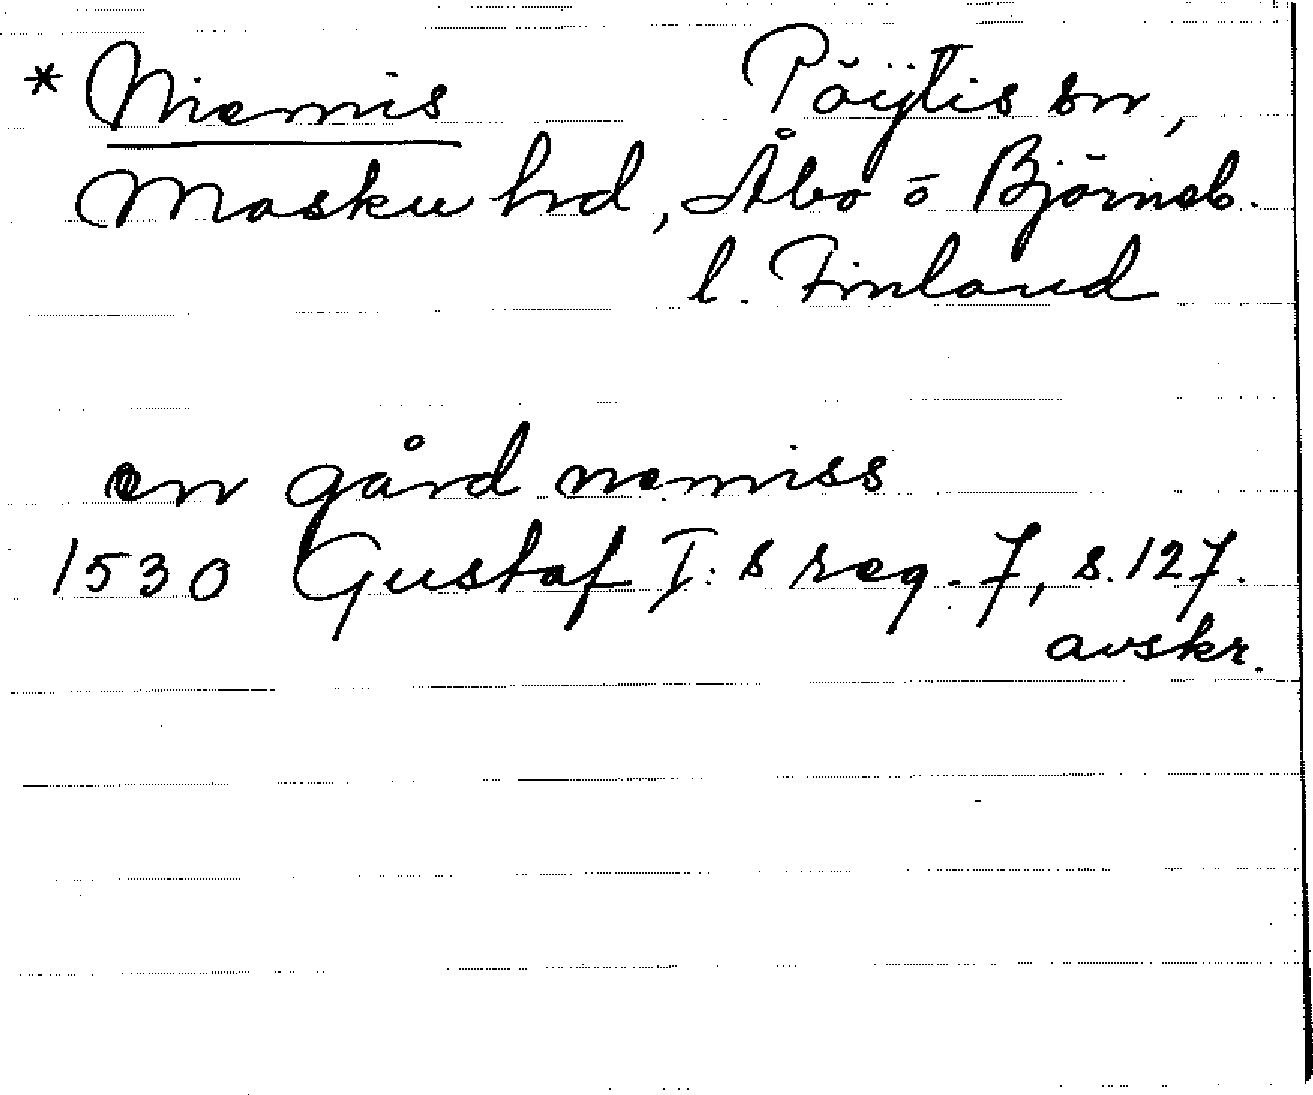 * Niemis Pöÿtis sn,
Masku hd, Åbo o Björneb.
l. Finland
en gård nemiss
1530 Gustaf I:s reg. 7, s. 127.
avskr.